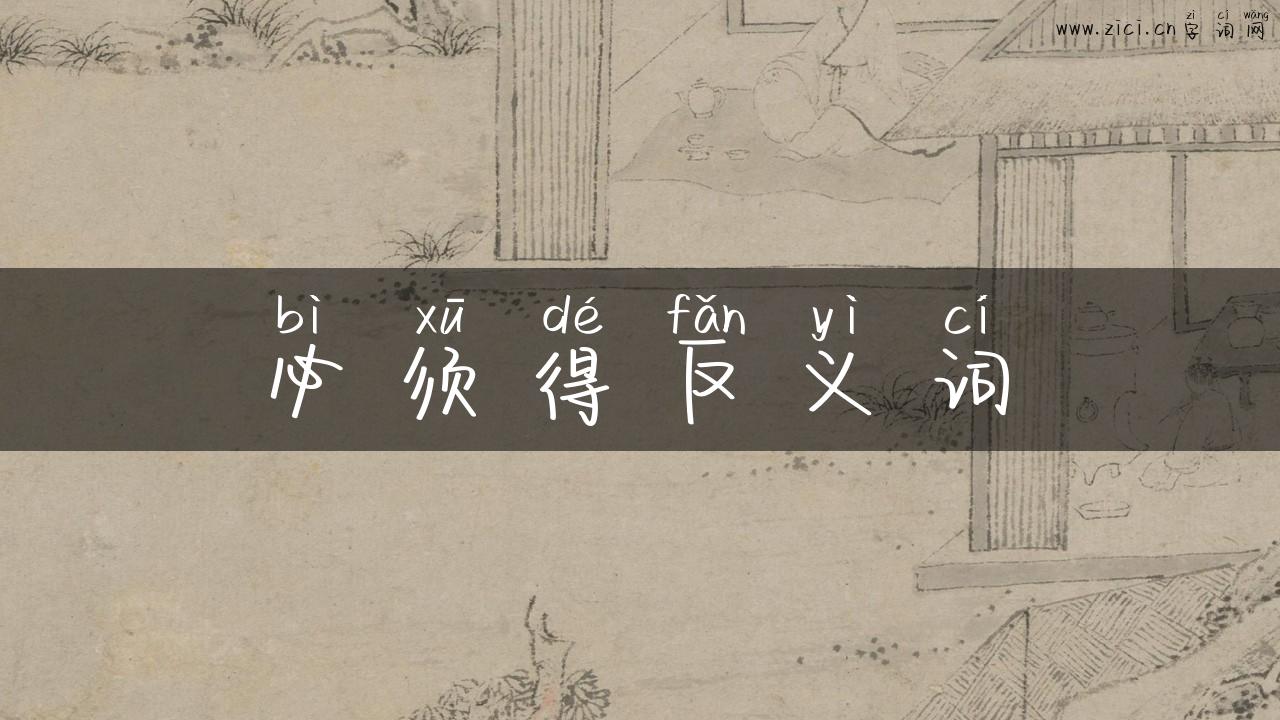 zì cí wǎng
www.zici.cn 字词网
bì xū dé fǎn yì cí
必须得反义词